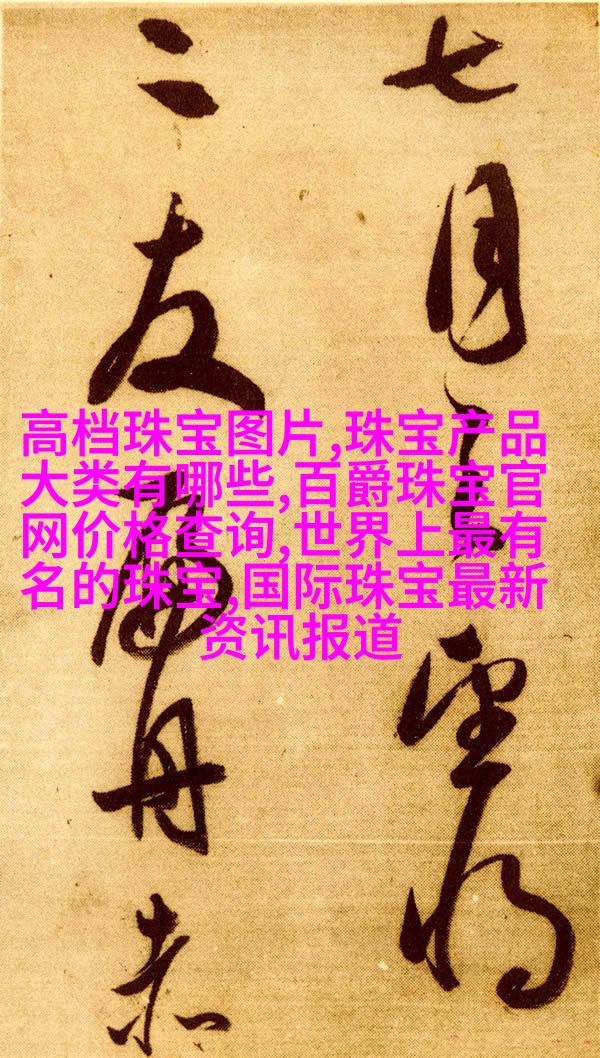 七月望將
二友舟赤
高档珠宝图片,珠宝产品
大类有哪些,百爵珠宝官
网价格查询,世界上最有
名的珠宝,国际珠宝最新
资讯报道